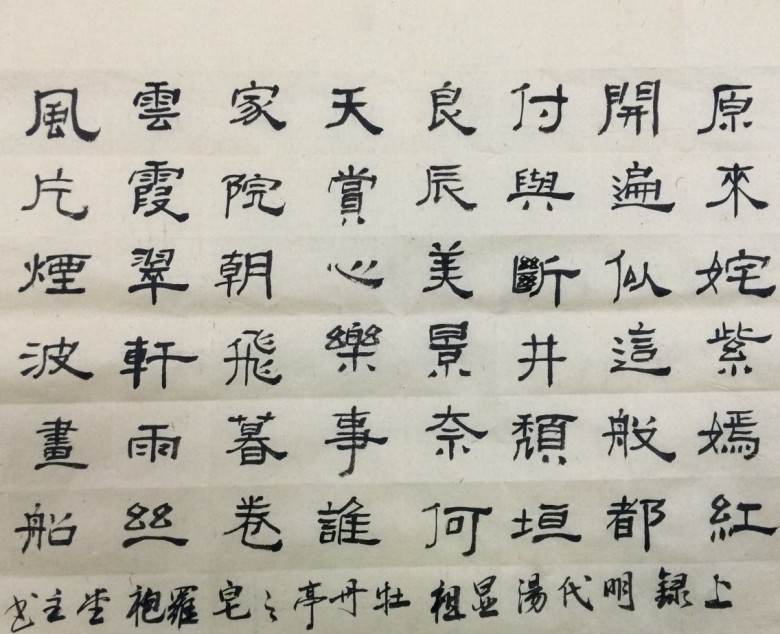 原來姹紫嫣紅
開遍似這般都
付與斷井頹垣
良辰美景奈何
天賞心樂事誰
家院朝飛暮卷
雲霞翠軒雨丝
風片煙波畫船
上録明代湯显祖牡丹亭之皂羅袍堂主书